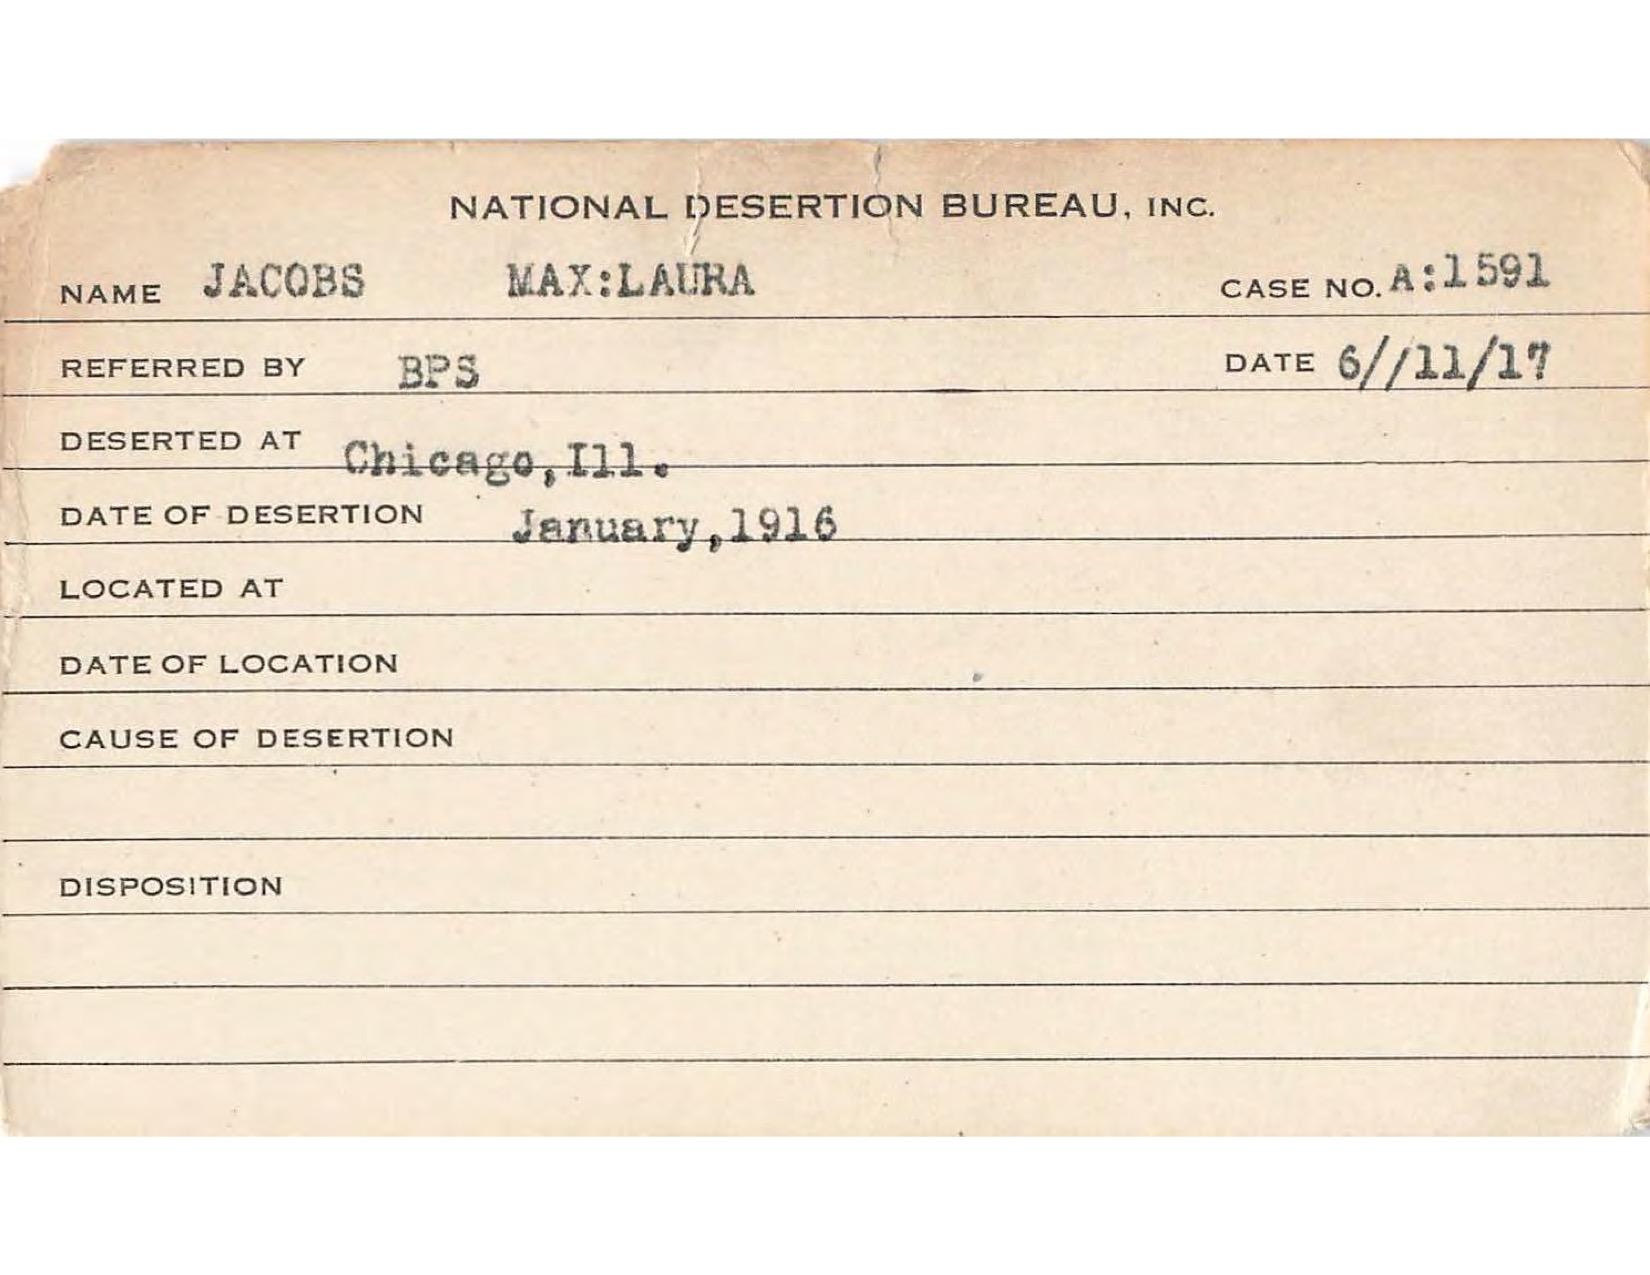 NATIONAL DESERTION BUREAU, INC.
NAME JACOBS MAX:LAURA CASE NO. A:1591
REFERRED BY BPS DATE 6//11/17
DESERTED AT Chicago,Ill.
DATE OF DESERTION January,1916
LOCATED AT
DATE OF LOCATION
CAUSE OF DESERTION
DISPOSITION